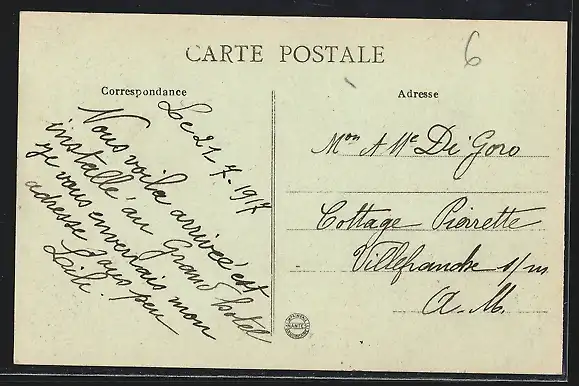 6
CARTE POSTALE
Correspondance
Adresse
Le 21-7-1917
Nous voila arrivée est
installé au Grand hotel
je vous enverrais mon
adresse d'ajus peu
Lili.
Mon A Mle Di Goro
Cottage Pierrette
Villefranche s/m
A. M.
NANTES